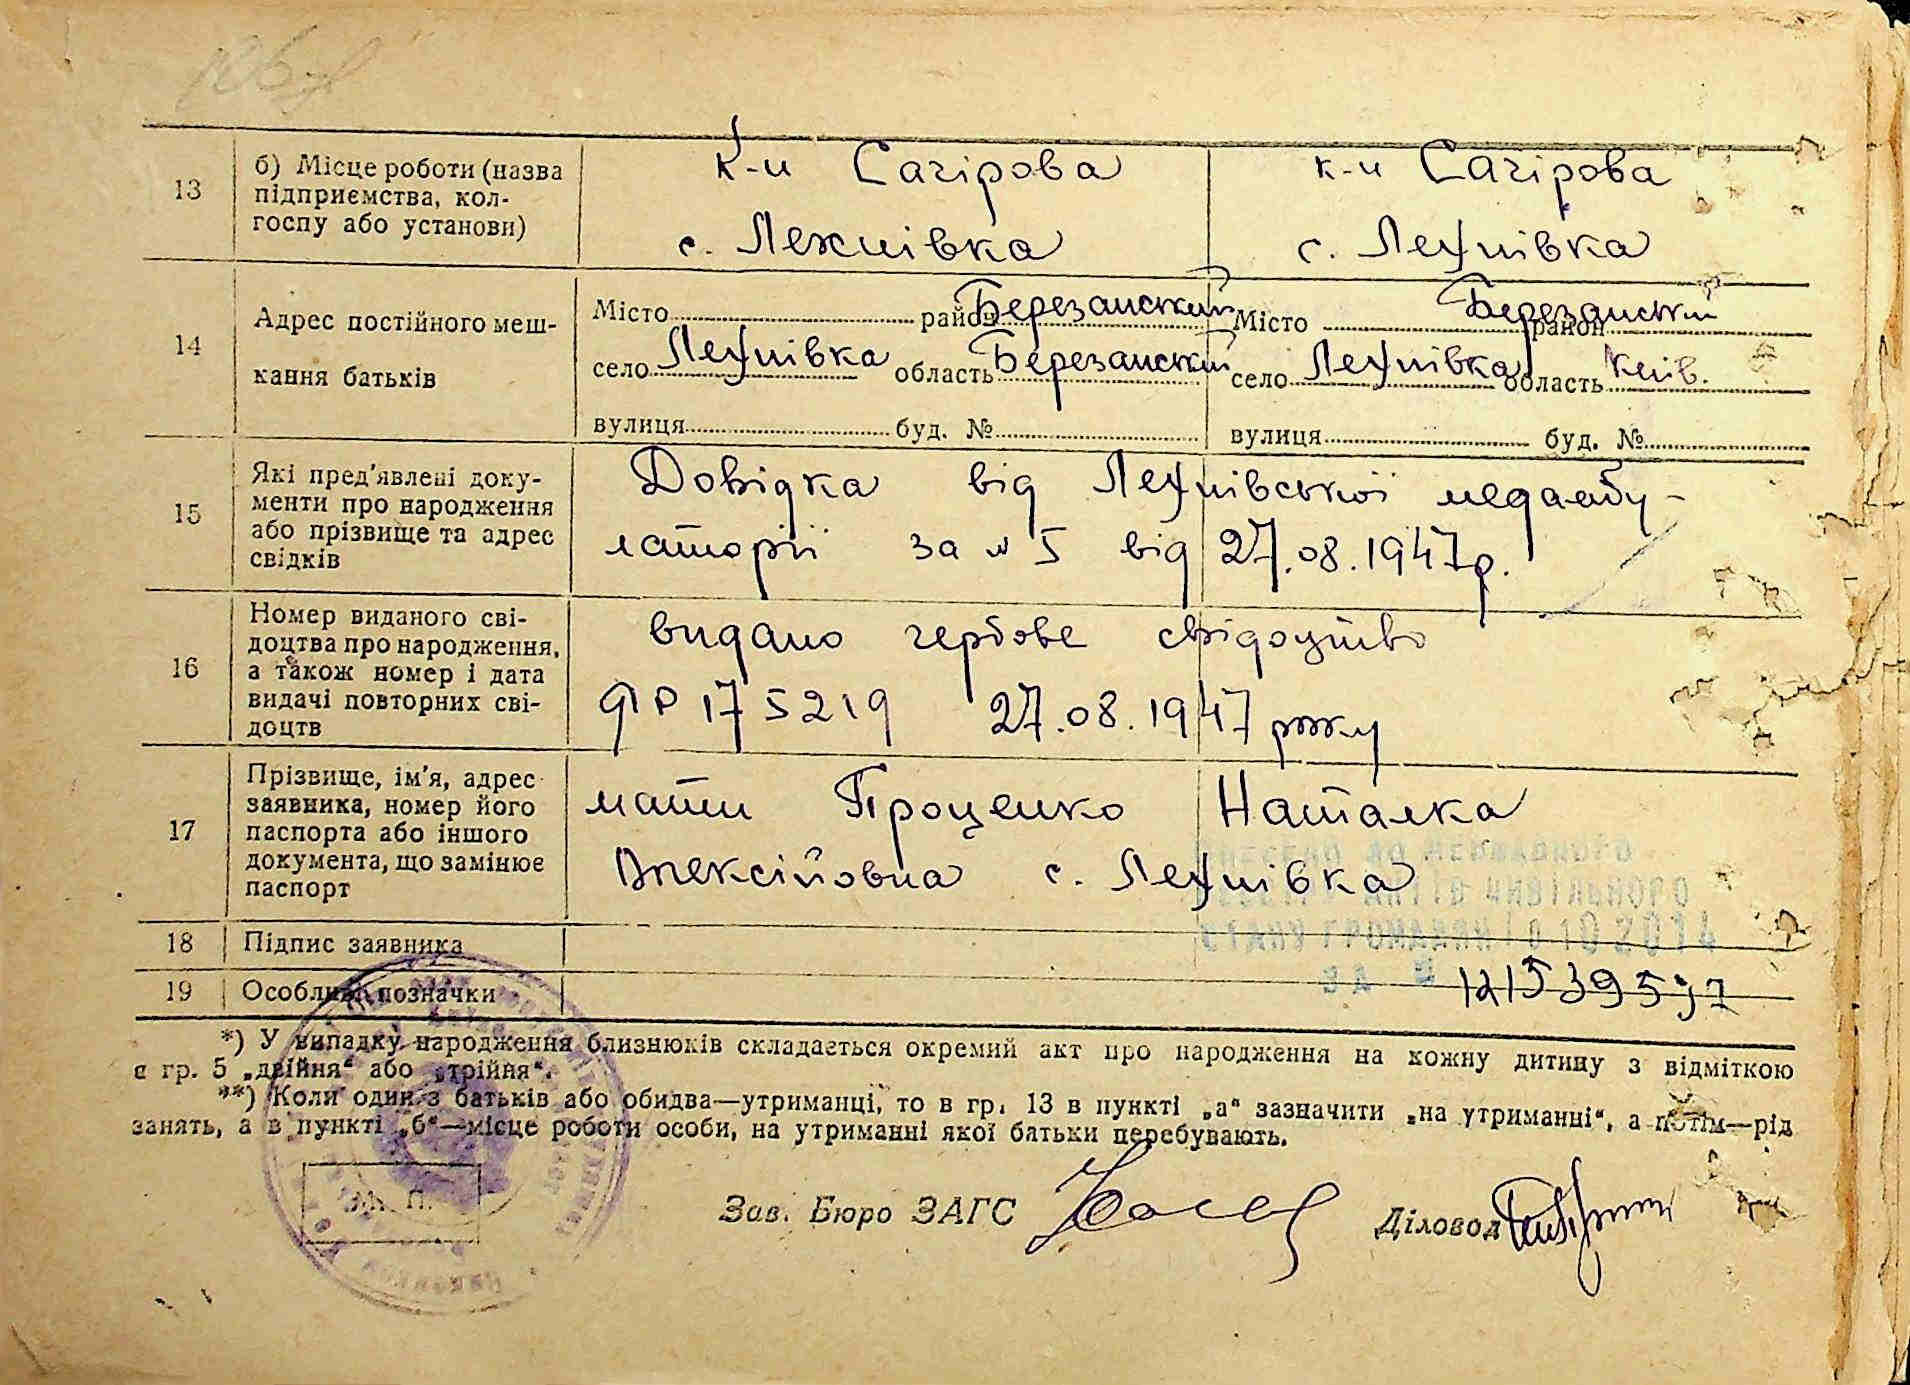 13
б) Місце роботи (назва
підприємства, кол-
госпу або установи)
к-и Сагірова
с. Лехнівка
к-и Сагірова
с. Лехнівка
14
Адрес постійного меш-
кання батьків
Місто район Березанський
село Лехнівка область Березанський
вулиця буд. №
Місто район Березанський
село Лехнівка область Київ.
вулиця буд. №
15
Які пред'явлені доку-
менти про народження
або прізвище та адрес
свідків
Довідка від Лехнівської медамбу-
латорії за № 5 від 27.08.1947р.
16
Номер виданого сві-
доцтва про народження,
а також номер і дата
видачі повторних сві-
доцтв
видано гербове свідоцтво
ЯР 175219 27.08.1947 року
17
Прізвище, ім'я, адрес
заявника, номер його
паспорта або іншого
документа, що замінює
паспорт
мати Проценко Наталка
Олексіївна с. Лехнівка
ВНЕСЕНО ДО ДЕРЖАВНОГО
РЕЄСТРУ АКТІВ ЦИВІЛЬНОГО
СТАНУ ГРОМАДЯН 10 10 2014
ЗА №
18 Підпис заявника
19 Особливі позначки
*) У випадку народження близнюків складається окремий акт про народження на кожну дитину з відміткою
в гр. 5 „двійня“ або „трійня“.
**) Коли один з батьків або обидва—утриманці, то в гр. 13 в пункті „а“ зазначити „на утриманні“, а потім—рід
занять, а в пункті „б“—місце роботи особи, на утриманні якої батьки перебувають.
М. П.
Зав. Бюро ЗАГС
Діловод